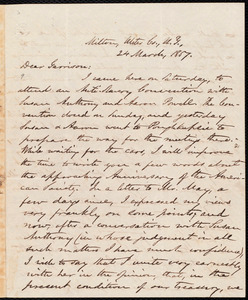 Milton, Ulster Co., N.Y.,
24 March, 1857.
Dear Garrison:
I came here on Saturday, to
attend an Anti-Slavery Convention with
Susan Anthony and Aaron Powell. The Con-
vention closed on Sunday, and yesterday
Susan & Aaron went to Poughkeepsie to
prepare the way for the meeting there.
While waiting for the cars, I will improve
the time to write you a few words about
the approaching Anniversary of the Ameri-
can Society. In a letter to Mr. May, a
few days since, I expressed my views
very frankly on some points; and
now, after a conversation with Susan
Anthony (in whose judgement on all
such matters I have much confidence)
I wish to say that I unite very earnestly
with her in the opinion, that, in the
present condition of our treasury, we